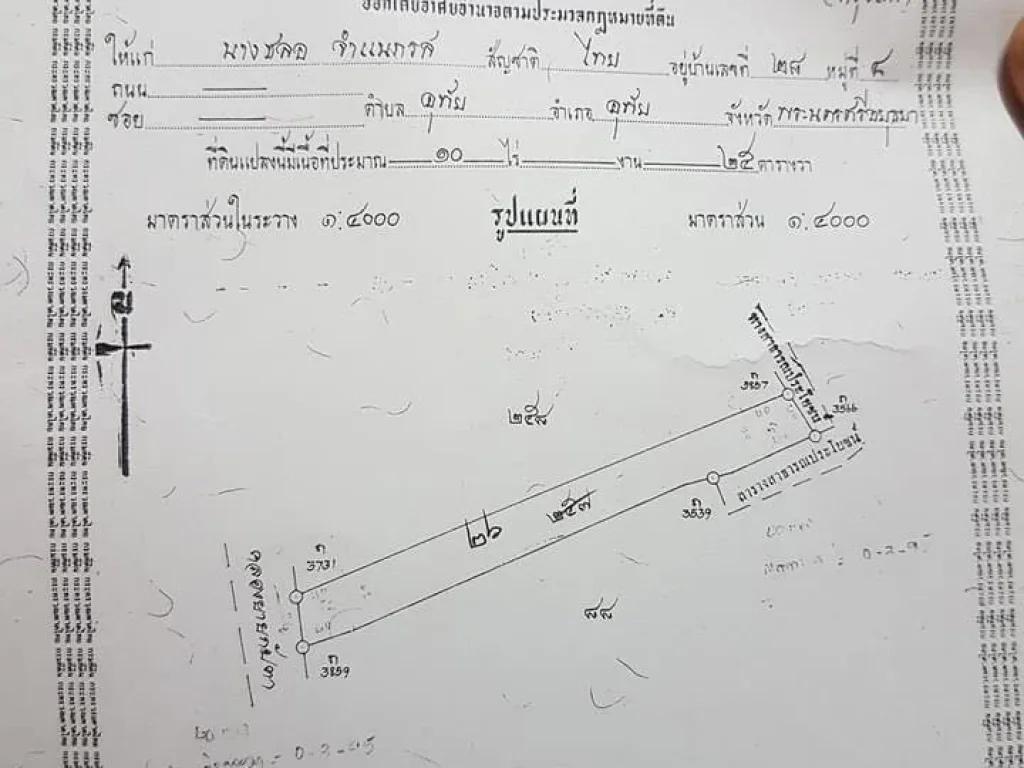 ออกโดยอาศัยอำนาจตามประมวลกฎหมายที่ดิน
ให้แก่ นางชลอ จำแนกรส สัญชาติ ไทย อยู่บ้านเลขที่ ๒๘ หมู่ที่ ๘
ถนน
ซอย ตำบล อุทัย อำเภอ อุทัย จังหวัด พระนครศรีอยุธยา
ที่ดินแปลงนี้มีเนื้อที่ประมาณ ๑๐ ไร่ งาน ๒๕ ตารางวา
มาตราส่วนในระวาง ๑:๔๐๐๐ รูปแผนที่ มาตราส่วน ๑:๔๐๐๐
น
ทางสาธารณประโยชน์
ก
3857
ก
3566
๒๕๘
ทางสาธารณประโยชน์
ก
3539
๒๕๗
๒๖
ก
3731
๘๘
ก
3859
0-2-95